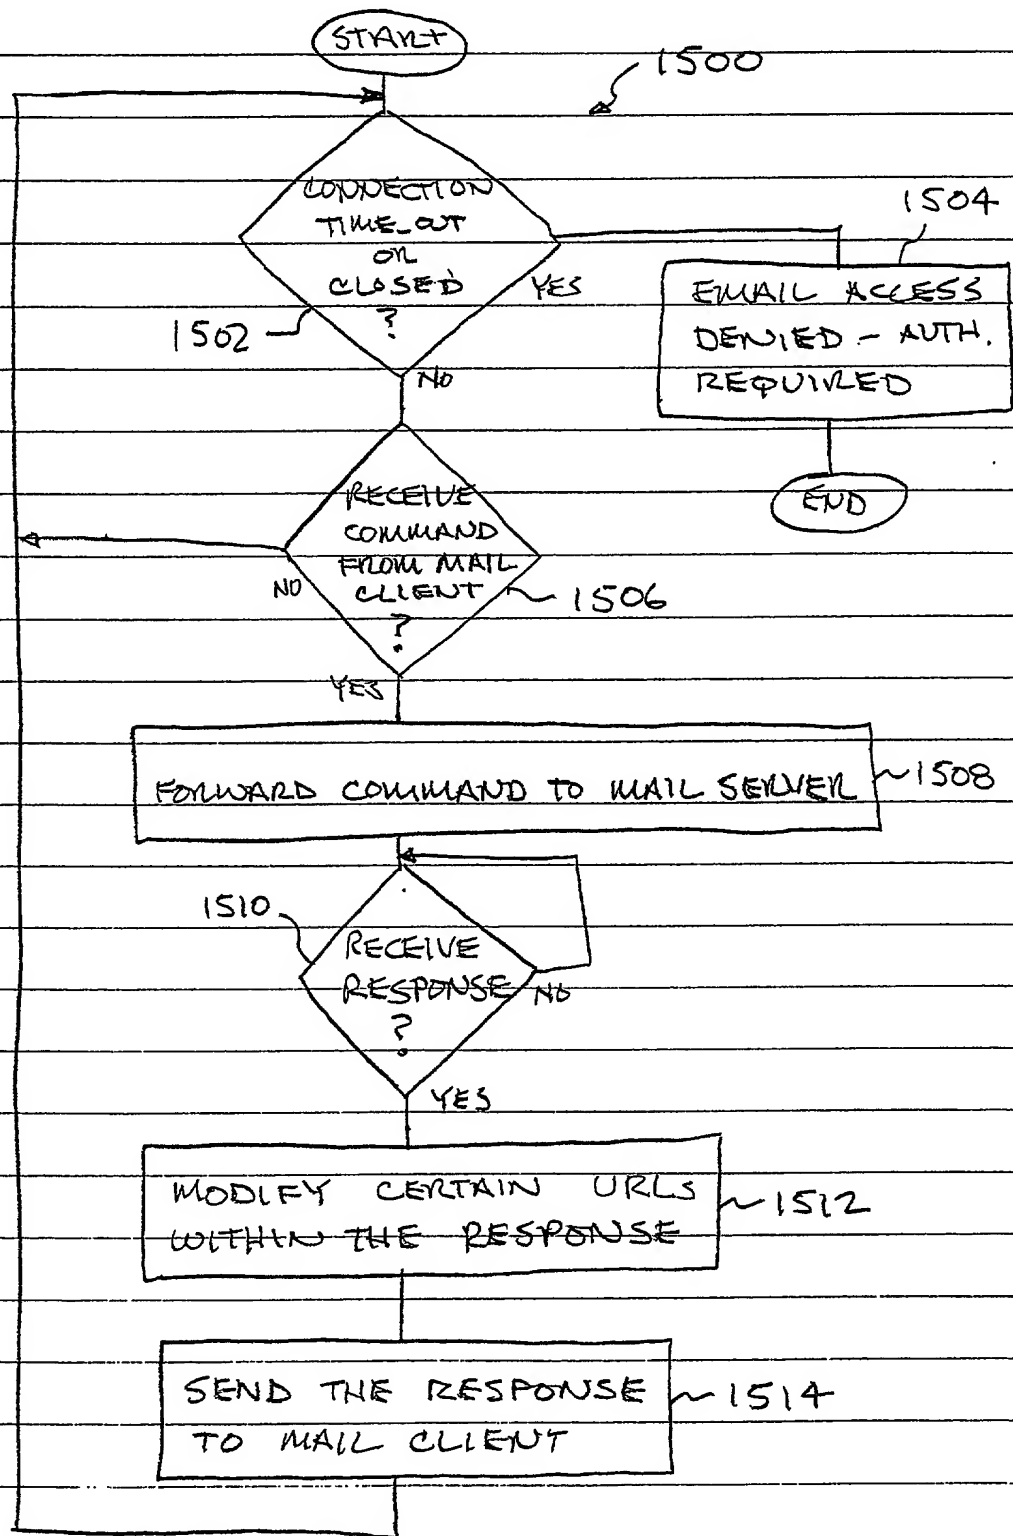 START
1500
CONNECTION
TIME-OUT
OR
CLOSED
?
YES
1502
NO
1504
EMAIL ACCESS
DENIED - AUTH.
REQUIRED
END
RECEIVE
COMMAND
FROM MAIL
CLIENT
?
NO
1506
YES
FORWARD COMMAND TO MAIL SERVER
1508
1510
RECEIVE
RESPONSE
?
NO
YES
MODIFY CERTAIN URLs
WITHIN THE RESPONSE
1512
SEND THE RESPONSE
TO MAIL CLIENT
1514